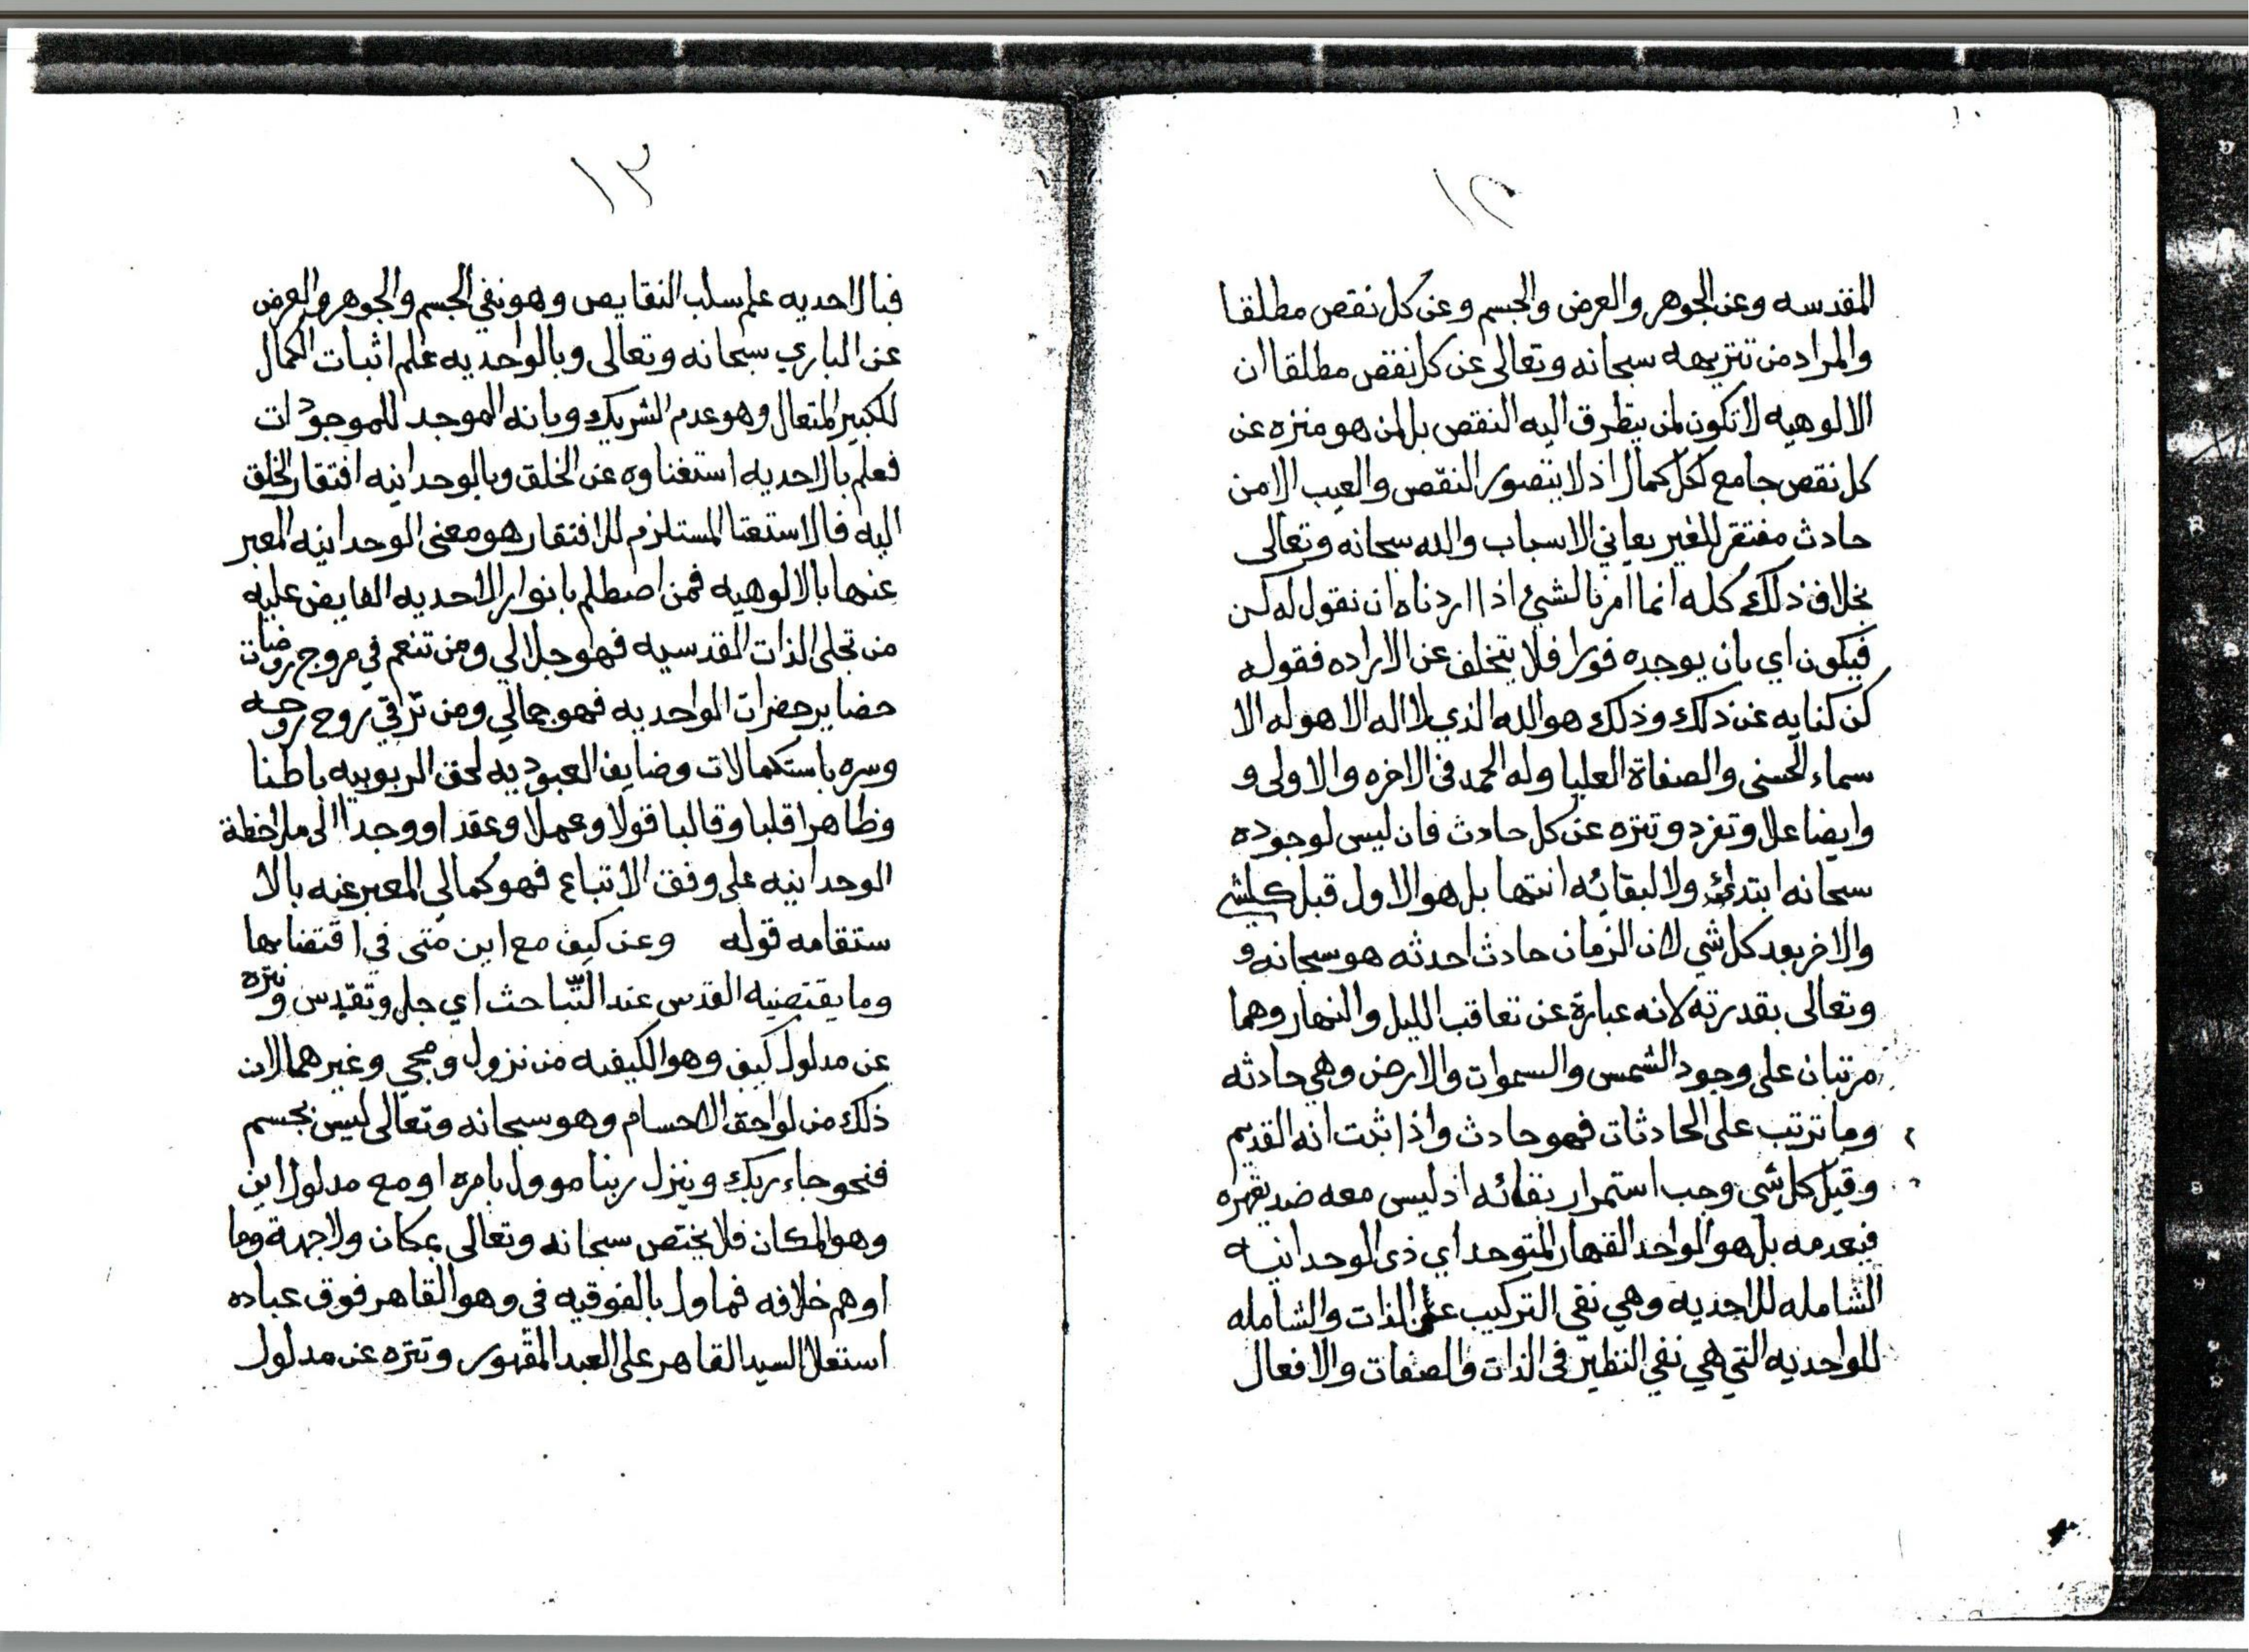 ١٢
المقدسه وعن الجوهر والعرض والجسم وعن كل نقص مطلقا
والمراد من تنزيهه سبحانه وتعالى عن كل نقص مطلقا ان
الالوهيه لا تكون لمن يتطرق اليه النقص بل لمن هو منزه عن
كل نقص جامع لكل كمال اذ لا يتصور النقص والعيب الا من
حادث مفتقر للغير يعاني الاسباب والله سبحانه وتعالى
بخلاف ذلك كله انما امرنا لشيء اذا اردناه ان نقول له كن
فيكون اي بان يوجده فورا فلا يتخلف عن الاراده فقوله
كن كنايه عن ذلك وذلك هو الله الذي لا اله الا هو له الا
سماء الحسنى والصفاة العليا وله الحمد في الاخره والاولى و
وايضا علا وتفرد وتنزه عن كل حادث فان ليس لوجوده
سبحانه ابتداء ولا لبقائه انتها بل هو الاول قبل كل شي
والاخر بعد كل شي لان الزمان حادث احدثه هو سبحانه و
وتعالى بقدرته لانه عبارة عن تعاقب الليل والنهار وهما
مرتبان على وجود الشمس والسموات والارض وهي حادثه
وما ترتب على الحادثات فهو حادث واذا ثبت انه القديم
وقبل كل شي وجب استمرار بقائه اذ ليس معه ضد يقهره
فيعدمه بل هو الواحد القهار المتوحد اي ذي الوحدانيه
الشامله للاحديه وهي نفي التركيب عن الذات والشامله
للواحديه التي هي نفي النظير في الذات والصفات والافعال
١٣
فبالاحديه علم سلب النقايص وهو نفي الجسم والجوهر والعرض
عن الباري سبحانه وتعالى وبالواحديه علم اثبات الكمال
للكبير المتعال وهو عدم الشريك وبانه الموجد للموجودات
فعلم بالاحديه استغناوه عن الخلق وبالوحدانيه افتقار الخلق
اليه فالاستغنا المستلزم للافتقار هو معنى الوحدانيه المعبر
عنها بالالوهيه فمن اصطلم بانوار الاحديه الفايض عليه
من تجلى الذات القدسيه فهو جلالي ومن تنعم في مروج روضات
حضاير حضرات الواحديه فهو جمالي ومن ترقي روح روحه
وسره باستكمالات وضايف العبوديه لحق الربوبيه باطنا
وظاهرا قلبا وقالبا قولا وعملا وعقدا ووجدا الى ملاحظة
الوحدانيه على وفق الاتباع فهو كمالي المعبر عنه بالا
ستقامه قوله وعن كيف مع اين متى في اقتضايها
وما يقتضيه القدس عند التباحث اي جل وتقدس وتنزه
عن مدلول كيف وهو الكيفيه من نزول ومجي وغيرهما لان
ذلك من لواحق الاجسام وهو سبحانه وتعالى ليس بجسم
فنحو جاء ربك وينزل ربنا موول بامره او مع مدلول اين
وهو المكان فلا يختص سبحانه وتعالى بمكان ولا جهة وما
اوهم خلافه فماول بالفوقيه في وهو القاهر فوق عباده
استعلا السيد القاهر على العبد المقهور وتنزه عن مدلول